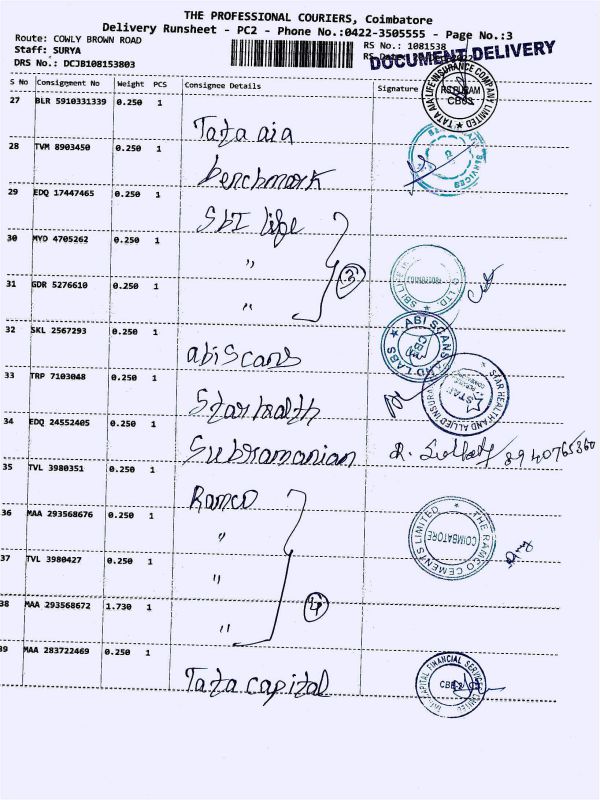 THE PROFESSIONAL COURIERS, Coimbatore
Delivery Runsheet - PC2 - Phone No.:0422-3505555 - Page No.:3
Route: COWLY BROWN ROAD
RS No.: 1081538
Staff: SURYA
DOCUMENT DELIVERY
DRS No.: DCJB108153803
S No Consignment No Weight PCS Consignee Details Signature
27 BLR 5910331339 0.250 1
Tata aia
TATA AIA LIFE INSURANCE COMPANY LIMITED
28 TVM 8903450 0.250 1
benchmark
SERVICES
29 EDQ 17447465 0.250 1
SbI life
30 MYD 4705262 0.250 1
"
31 GDR 5276610 0.250 1
" 3
32 SKL 2567293 0.250 1
abiScans
ABI SCANS AND LABS
33 TRP 7103048 0.250 1
Starhealth
STAR HEALTH AND ALLIED INSURA
34 EDQ 24552405 0.250 1
Subramanian
8940765360
35 TVL 3980351 0.250 1
Ramco
36 MAA 293568676 0.250 1
"
THE RAMCO CEMENTS LIMITED
COIMBATORE
37 TVL 3980427 0.250 1
"
38 MAA 293568672 1.730 1
" 4
39 MAA 283722469 0.250 1
Tata capital
CAPITAL FINANCIAL SERVICES LIMITED